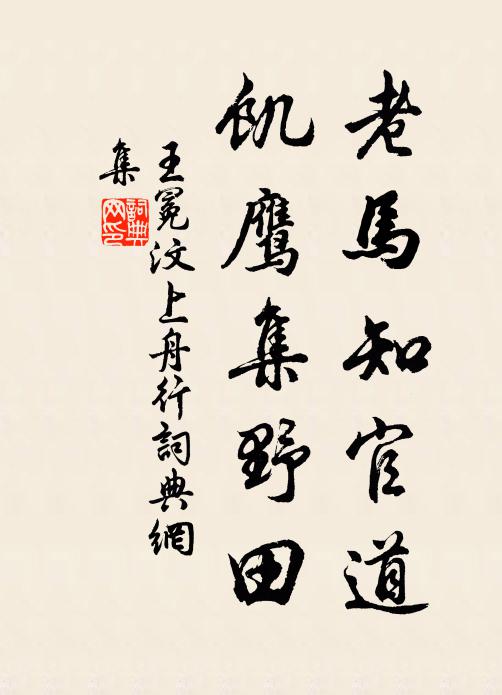 老馬知官道
飢鷹集野田
王冕汶上舟行詞典網
集
詞典
网印